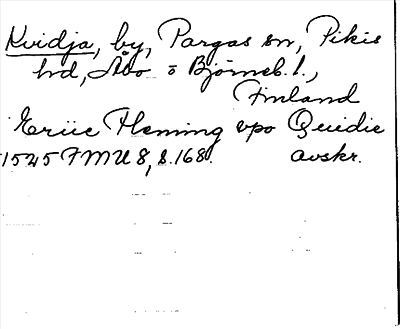 Kvidja, by, Pargas sn, Pikis
hd, Åbo o Björneb. l.,
Finland
Eriic Fleming vpo Quidie
1545 FMU 8, s. 168. avskr.